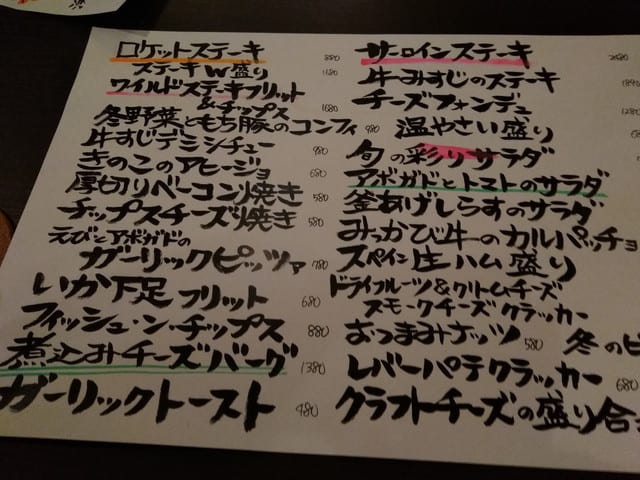 ロケットステーキ 880
ステーキW盛り 1180
ワイルドステーキフリット
&チップス 1680
冬野菜ともち豚のコンフィ 980
牛すじデミシチュー 980
きのこのアヒージョ 680
厚切りベーコン焼き 580
チップスチーズ焼き 580
えびとアボガドの
ガーリックピッツァ 780
いか下足フリット 680
フィッシュ・ン・チップス 880
煮込みチーズバーグ 1380
ガーリックトースト 480
サーロインステーキ
牛みすじのステーキ
チーズフォンデュ 1280
温やさい盛り
旬の彩りサラダ
アボガドとトマトのサラダ
釜あげしらすのサラダ
みっかび牛のカルパッチョ
スペイン庄ハム盛り
ドライフルーツ&クリームチーズ
スモークチーズクラッカー
おつまみナッツ 580 冬の
レバーパテクラッカー 680
クラフトチーズの盛り合